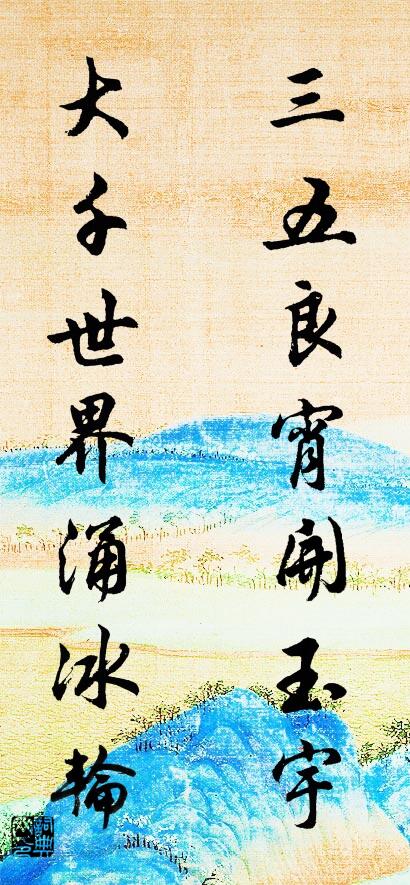 三五良宵開玉宇
大千世界涌冰輪